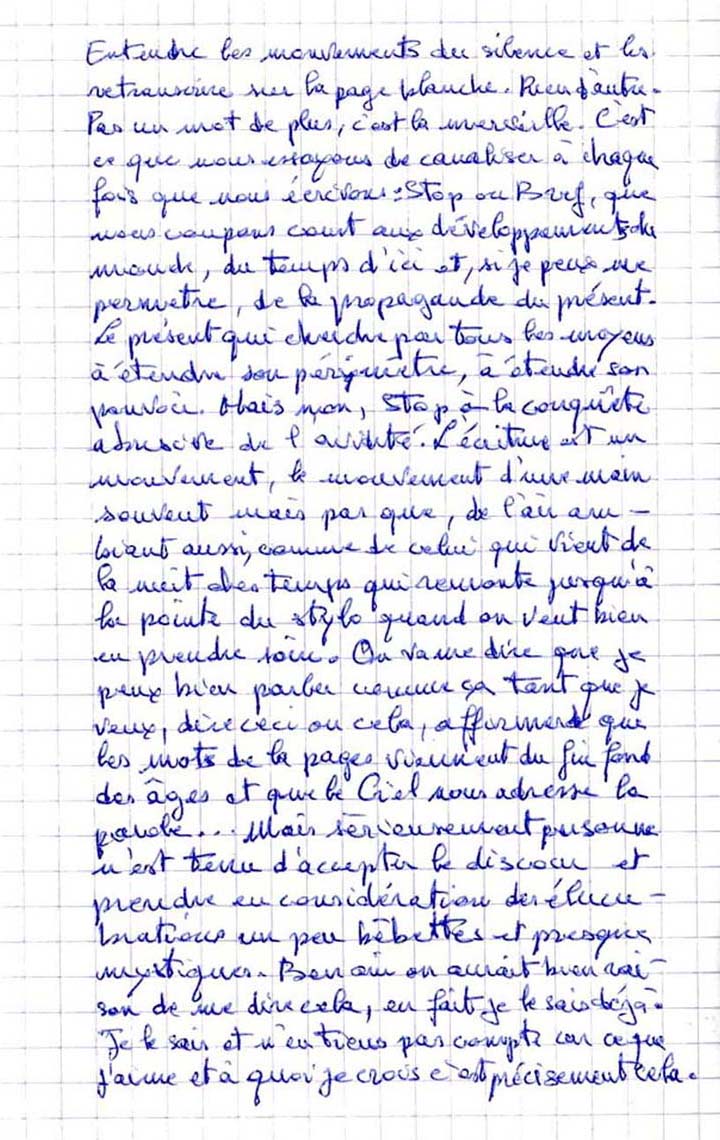 Entendre les mouvements du silence et les
retranscrire sur la page blanche. Rien d'autre.
Pas un mot de plus, c'est la merveille. C'est
ce que nous essayons de canaliser à chaque
fois que nous écrivons : Stop ou Bref, que
nous coupons court aux développements du
monde, du temps d'ici et, si je peux me
permettre, de la propagande du présent.
Le présent qui cherche par tous les moyens
à étendre son périmètre, à étendre son
pouvoir. Mais non, Stop à la conquête
abusive de l'actualité. L'écriture est un
mouvement, le mouvement d'une main
souvent mais pas que, de l'air am-
biant aussi, comme de celui qui vient de
la nuit des temps qui remonte jusqu'à
la pointe du stylo quand on veut bien
en prendre soin. On va me dire que je
peux bien parler comme ça tant que je
veux, dire ceci ou cela, affirmer que
les mots de la pages viennent du fin fond
des âges et que le Ciel nous adresse la
parole... Mais sérieusement personne
n'est tenu d'accepter le discours et
prendre en considération des élucu-
brations un peu bébettes et presque
mystiques. Ben oui on aurait bien rai-
son de me dire cela, en fait je le sais déjà.
Je le sais et n'en tiens pas compte car ce que
j'aime et à quoi je crois c'est précisément cela.